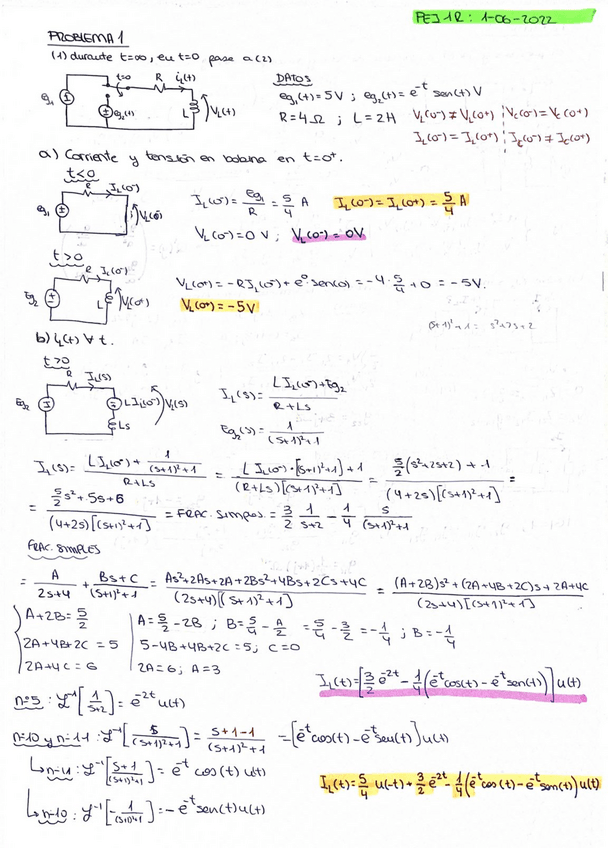 PEJ 1R: 1-06-2022
PROBLEMA 1
(1) durante t=∞, eu t=0 pasa a (2)
t=0 R i_L(t)
eg₁ eg₂(t) L V_L(t)
DATOS
eg₁(t) = 5V ; eg₂(t) = e^-t sen(t) V
R = 4Ω ; L = 2H
V_L(0-) ≠ V_L(0+) V_C(0-) = V_C(0+)
I_L(0-) = I_L(0+) I_C(0-) ≠ I_C(0+)
a) Corriente y tensión en bobina en t=0+.
t<0
R I_L(0-)
eg₁ V_L(0-)
I_L(0-) = eg₁/R = 5/4 A
I_L(0-) = I_L(0+) = 5/4 A
V_L(0-) = 0 V ; V_L(0-) = 0V
t>0
R I_L(0+)
Eg₂ L V_L(0+)
V_L(0+) = -R I_L(0-) + e⁰ sen(0) = -4 · 5/4 + 0 = -5V.
V_L(0+) = -5V
(s+1)²+1 = s²+2s+2
b) i_L(t) ∀ t.
t>0
R I_L(s)
Eg₂ L I_L(0-) V_L(s)
Ls
I_L(s) = (L I_L(0-) + Eg₂)/(R+Ls)
Eg₂(s) = 1/((s+1)²+1)
I_L(s) = (L I_L(0-) + 1/((s+1)²+1))/(R+Ls) = (L I_L(0-)·[(s+1)²+1]+1)/((R+Ls)[(s+1)²+1]) = (5/2(s²+2s+2)+1)/((4+2s)[(s+1)²+1]) =
= (5/2 s²+5s+6)/((4+2s)[(s+1)²+1]) = FRAC. SIMPLES = 3/2 1/(s+2) - 1/4 s/((s+1)²+1)
FRAC. SIMPLES
= A/(2s+4) + (Bs+C)/((s+1)²+1) = (As²+2As+2A+2Bs²+4Bs+2Cs+4C)/((2s+4)[(s+1)²+1]) = ((A+2B)s²+(2A+4B+2C)s+2A+4C)/((2s+4)[(s+1)²+1])
A+2B = 5/2 A = 5/2 - 2B ; B = 5/4 - A/2 = 5/4 - 3/2 = -1/4 ; B = -1/4
2A+4B+2C = 5 5-4B+4B+2C = 5; C=0
2A+4C = 6 2A=6; A=3
I_L(t) = [3/2 e^-2t - 1/4(e^-t cos(t) - e^-t sen(t))] u(t)
n=5: ℒ⁻¹[1/(s+2)] = e^-2t u(t)
n=10 y n=11: ℒ⁻¹[s/((s+1)²+1)] = (s+1-1)/((s+1)²+1) = [e^-t cos(t) - e^-t sen(t)] u(t)
↳ n=11: ℒ⁻¹[(s+1)/((s+1)²+1)] = e^-t cos(t) u(t)
↳ n=10: ℒ⁻¹[-1/((s+1)²+1)] = -e^-t sen(t) u(t)
I_L(t) = 5/4 u(-t) + 3/2 e^-2t - 1/4(e^-t cos(t) - e^-t sen(t)) u(t)